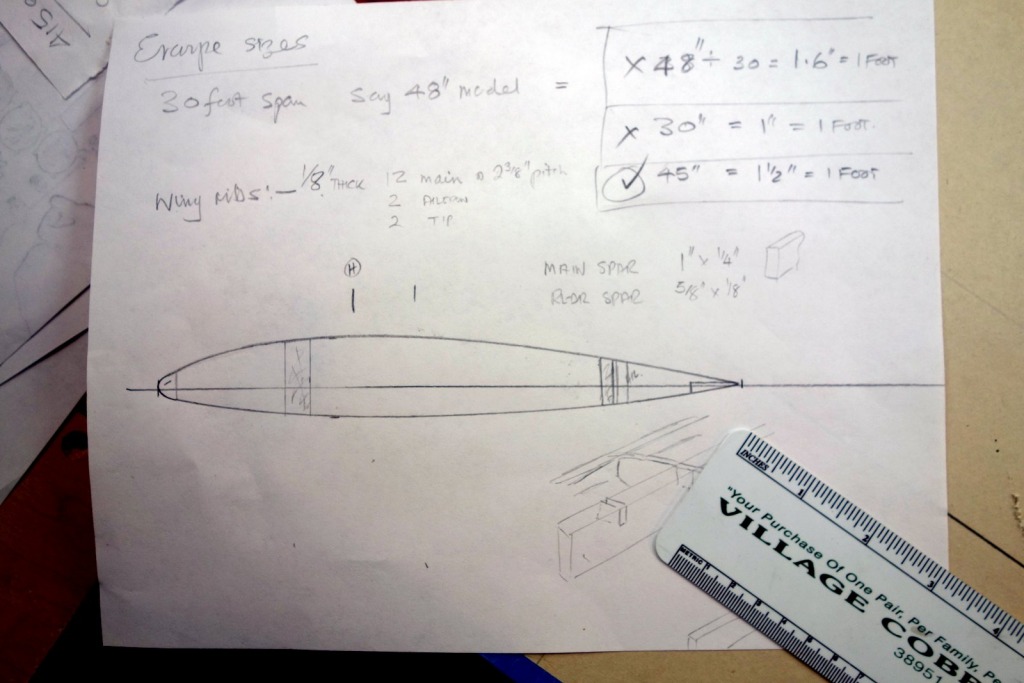 Example sizes
30 foot span say 48" model =
x 48" ÷ 30 = 1.6" = 1 FOOT
x 30" = 1" = 1 FOOT.
✓ 45" = 1 1/2" = 1 FOOT
Wing RIBS:- 1/8" THICK 12 main 2 3/8" pitch
2 AILERON
2 TIP
MAIN SPAR 1" x 1/4"
REAR SPAR 5/8" x 1/8"
H
415
INCHES
1 2 3 4
"Your Purchase Of One Pair, Per Family, Pe
VILLAGE COBB
38951
METRIC